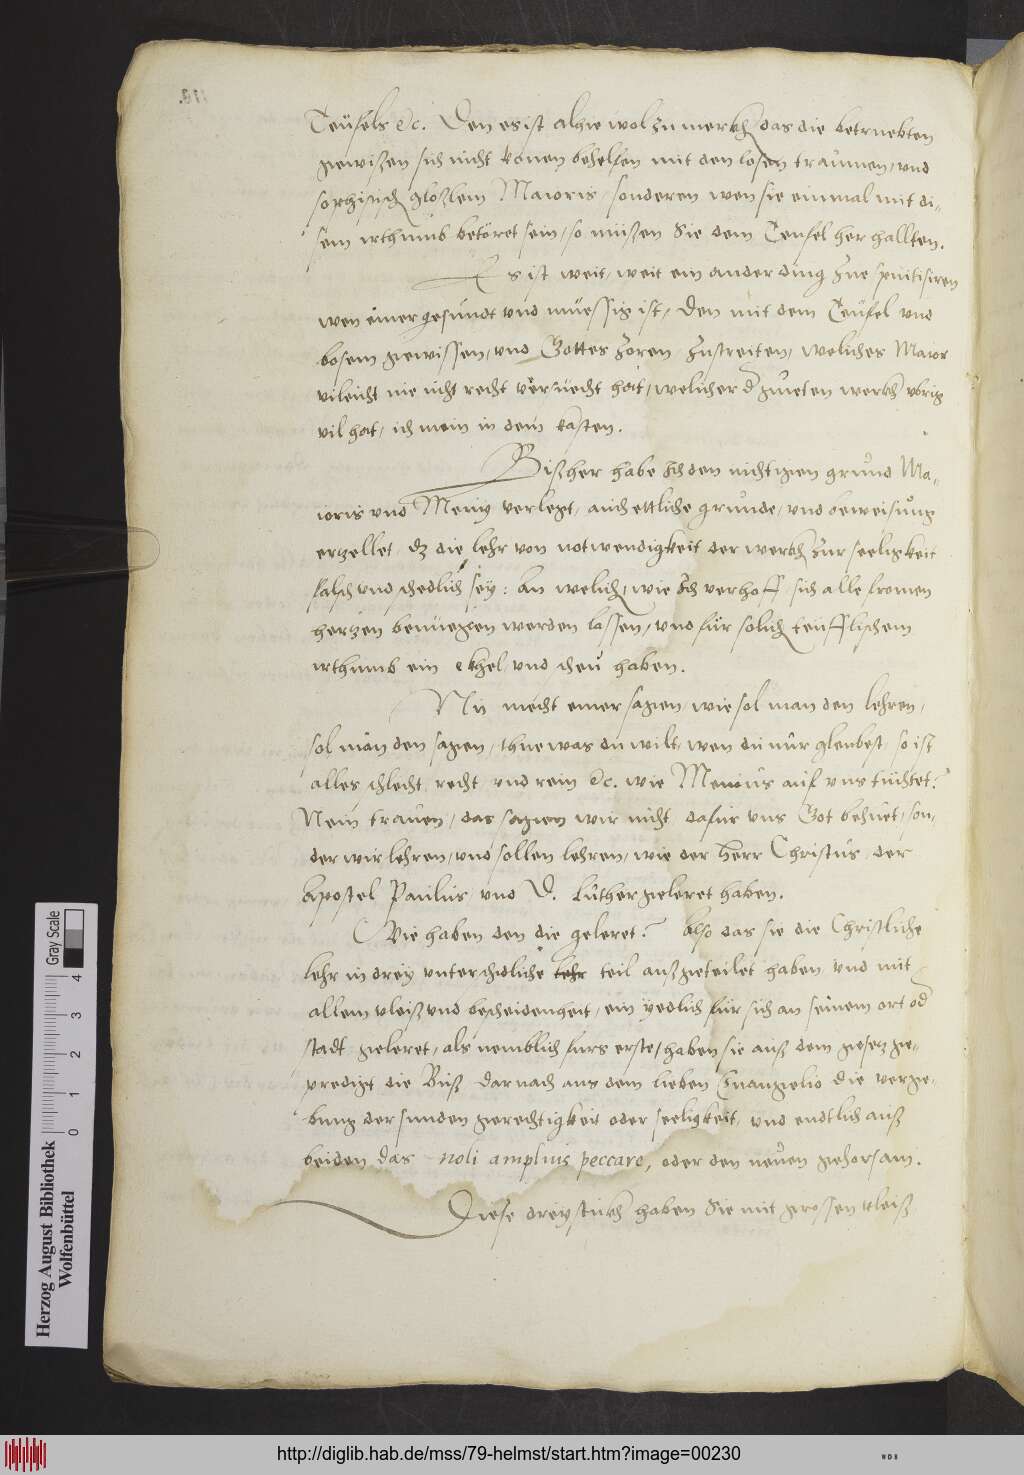 Teüfels etc. Den es ist alhie wol zu merckhen das die betruebten
gewißen sich nicht konen behelffen mit den losen traumen, und
sophistisch gloßlein Maioris, sonderen wen sie einmal mit di-
sem irthumb betöret sein, so müßen Sie dem Teufel her hallten.
Es ist weit, weit ein ander ding zue spintisiren
wen einer gesundt und muessig ist, den mit dem Teüfel und
bosem gewissen, und Gottes zoren, zu streiten, weliches Maior
vileicht nie nicht recht versuecht hat, welicher der gueten werckhen ubrig
vil hat, ich mein in dem kasten.
Bißher habe Ich den nichtigen grund Ma-
ioris und Menij verlegt, auch ettliche grunde, und beweisung
erzellet, dz die lehr von notwendigkeit der werckh zur seeligkeit
falsch und schedlich sey: An welichen, wie Ich verhoff, sich alle fromen
hertzen benuegen werden lassen, und für solich teüfflischem
irthumb ein ekhel, und scheu haben.
Nu mecht einer sagen, wie sol man den lehren,
sol man den sagen, thue was du wilt, wen du nur gleubest, so ist
alles schlecht, recht und rein etc. wie Menius auf uns tüchtet?
Nein trauen, das sagen wir nicht, dafur uns Got behuet, son-
der wir lehren, und sollen lehren, wie der Herr Christus, der
Apostel Paulus und D. Luther geleret haben.
Wie haben den die geleret? Also das sie die Christliche
lehr in drey unterschidliche lehr teil außgeteilet haben und mit
allem vleiß und bescheidenheit, ein yedlich für sich an seinem ort oder
stadt geleret, als nemblich furs erste, haben sie auß dem gesetz ge-
predigt die Buß, darnach aus dem lieben Euangelio die verge-
bung der sunden gerechtigkeit oder seeligkeit, und endtlich auß
beiden das noli amplius peccare, oder den neuen gehorsam.
Diese drey stuckh haben Sie mit grossen vleiß
Herzog August Bibliothek
Wolfenbüttel
0 1 2 3 4
Gray Scale
http://diglib.hab.de/mss/79-helmst/start.htm?image=00230
WDB